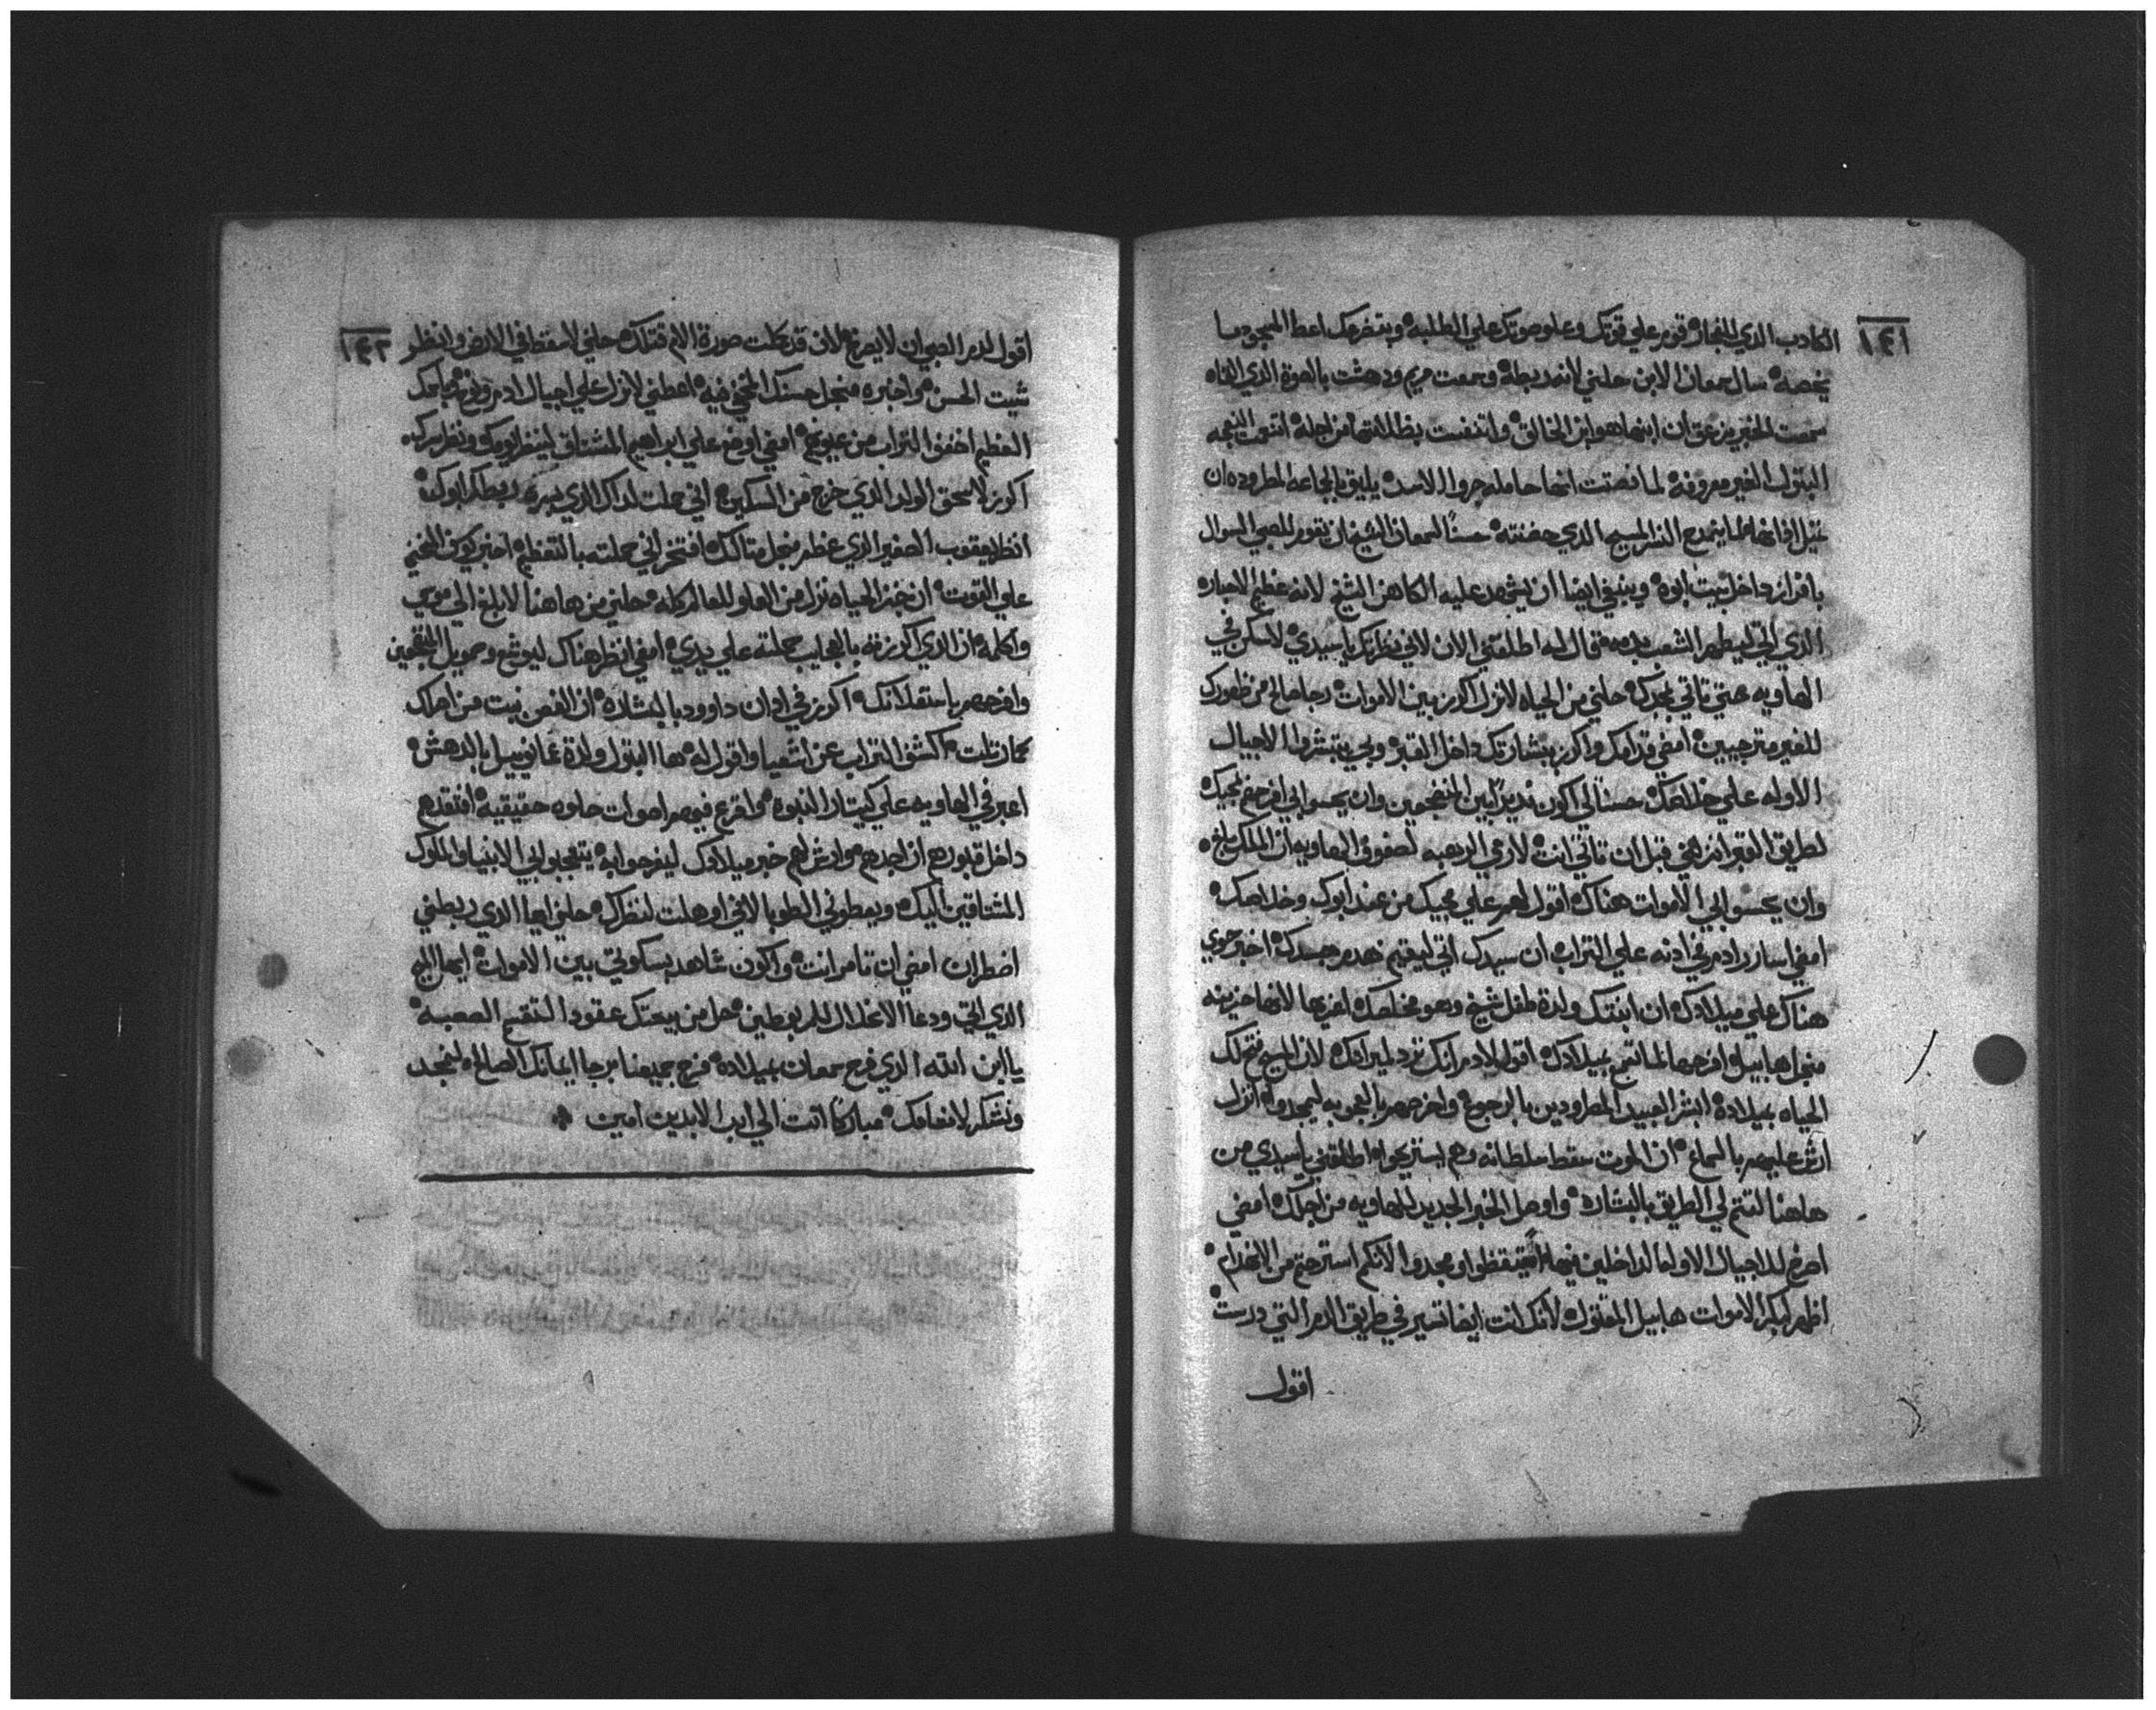 ١٤١
الكادب الذي للمجاز قوم علي قوتك وعلو صوتك علي الطلبه وبتضرعك اعطا المسيح ما
يخصه سال سمعان الابن حلني لانه ربطه وسمعت مريم ودهشت بالصوة الذي القاه
سمعت الخبر بزعق ان ابنها هو ابن الخالق من اجله النعجه
البتول الغير معروفه لما نصتت انها حامله جروا الاسد يليق بالجماعه المطروده ان
المسيح الذي حضنته حسناً لسمعان الشيخ ان للصبي السوال
باقراز داخل بيت ابوه وينبغي ايضا ان يشهد عليه الكاهن الشيخ لانه عظيم الاحباره
الذي اتي ليطهر الشعب بدمه قال له اطلقني الان لاني نظرتك يا سيدي لاسكن في
الهاويه حتي تاتي بمجدك حلني من الحياه لانزل اكرز بين الاموات رجا صالح من ظهورك
للغير مترجيين امضي قدامك واكرز ببشارتك داخل القبر وبي يتبشروا الاجيال
الاوله علي خلاصك حسناً لي اكون نديراً بين المضجعين وان يحسوا بي افرحهم بمجيك
لطريق القبر قبل ان تاتي انت لارمي الرهبه لصفوف الهاويه ان الملك بلغ
وان يحسوا بي الاموات هناك اقول لهم علي مجيك من عند ابوك وخلاصك
امضي اسارر ادم في ادنه علي التراب ان سيدك اتي ليقيم هدم جسدك اخبر حوي
هناك علي ميلادك ان ابنتك والدة طفل شيخ وهو مخلصك لانها حزينه
منجل هابيل افرحها بميلادك اقول لادم انك ترد لميراتك لان المسيح فتح لك
الحياه بميلاده ابشر العبيد المطرودين بالرجوع وافرحهم بالعجوبه ليمجدوا انزل
ارش عليهم بالسماع ان الموت سقط سلطانه وهم استريحوا اطلقني يا سيدي من
هاهنا لتتم لي الطريق بالبشاره واوصل الخبر الجديد للهاويه من اجلك امضي
اصرخ للاجيال الاوله الداخلين فيها تيقظوا ومجدوا لانكم استرحتم من الانهدام
اظهر لبكر الاموات هابيل المقتول لانك انت ايضا تسير في طريق الدم التي درست
اقول
١٤٢
اقول لدم الصبي ان لا يصرخ لاني قد كملت صورة الام قتلك حلني لاسقط في الارض وانظر
شيت الحسن واخبره منجل حسنك المخفي فيه اعطني لانزل علي اجيال ادم ونوح باسمك
العظيم انفض التراب من عيونهم امضي اوضح علي ابراهيم المشتاق لينظر يومك ونظر سرك
اكرز لاسحق الولد الذي خرج من السكين اني حملت لداك الذي بسره ربطك ابوك
انظر يعقوب الصغير الذي عظم منجل افتخر اني حملته بالتعظيم
علي القوت ان خبز الحياه نزل من العلو للعالم كله حلني من هاهنا لابلغ الي موسي
واكلمه ان الذي اكرز به بالعجايب حملته علي يدي امضي انظر هناك ليوشع وصمويل المضجعين
وافرحهم باستعلانك اكرز في ادان داوود بالبشاره ان الغصن نبت من اصلك
كما رتلت اكشف التراب عن اشعيا واقول له ها البتول والدة عمانوييل بالدهش
اعبر في الهاويه علي كيتار النبوه واقرع فيهم اصوات حلوه حقيقيه افتقدهم
داخل قبورهم ان اجدهم وارش لهم خبر ميلادك ليفرحوا به يتعجبوا بي الانبيا والملوك
المشتاقين اليك ويعطوني الطوبا لاني اوهلت لنظرك حلني ايها الذي ربطني
اضطران امضي ان تامر انت واكون شاهد بسكوتي بين الاموات ايها الاله
الذي اتي ودعا الانحلال للمربوطين حل من بيعتك عقود التقسيم الصعبه
يا ابن الله الذي فرح سمعان بميلاده فرح جميعنا برجا ايمانك الصالح لنمجد
ونشكر لانعامك مباركاً انت الي ابد الابدين امين